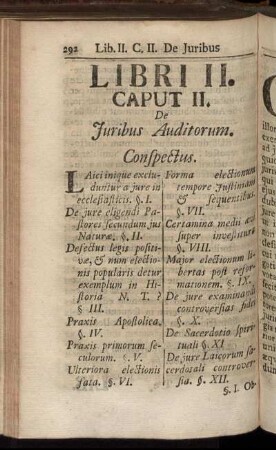 292 Lib. II. C. II. De Juribus
LIBRI II.
CAPUT II.
De
Juribus Auditorum.
Conspectus.
LAici inique exclu-
duntur a jure in
ecclesiasticis. §. I.
De jure eligendi Pa-
stores secundum jus
Naturæ. §. II.
Defectus legis positi-
væ, & num electio-
nis popularis detur
exemplum in Hi-
storia N. T.?
§ III.
Praxis Apostolica.
§. IV.
Praxis primorum se-
culorum. §. V.
Ulteriora electionis
fata. §. VI.
Forma electionum
tempore Justiniani
& sequentibus.
§. VII.
Certamina medii ævi
super investitura
§. VIII.
Major electionum li-
bertas post refor-
mationem. §. IX.
De jure examinandi
controversias fidei
§. X.
De Sacerdotio spiri-
tuali §. XI
De jure Laicorum sa-
cerdotali controver-
sia. §. XII.
§. I. Ob-